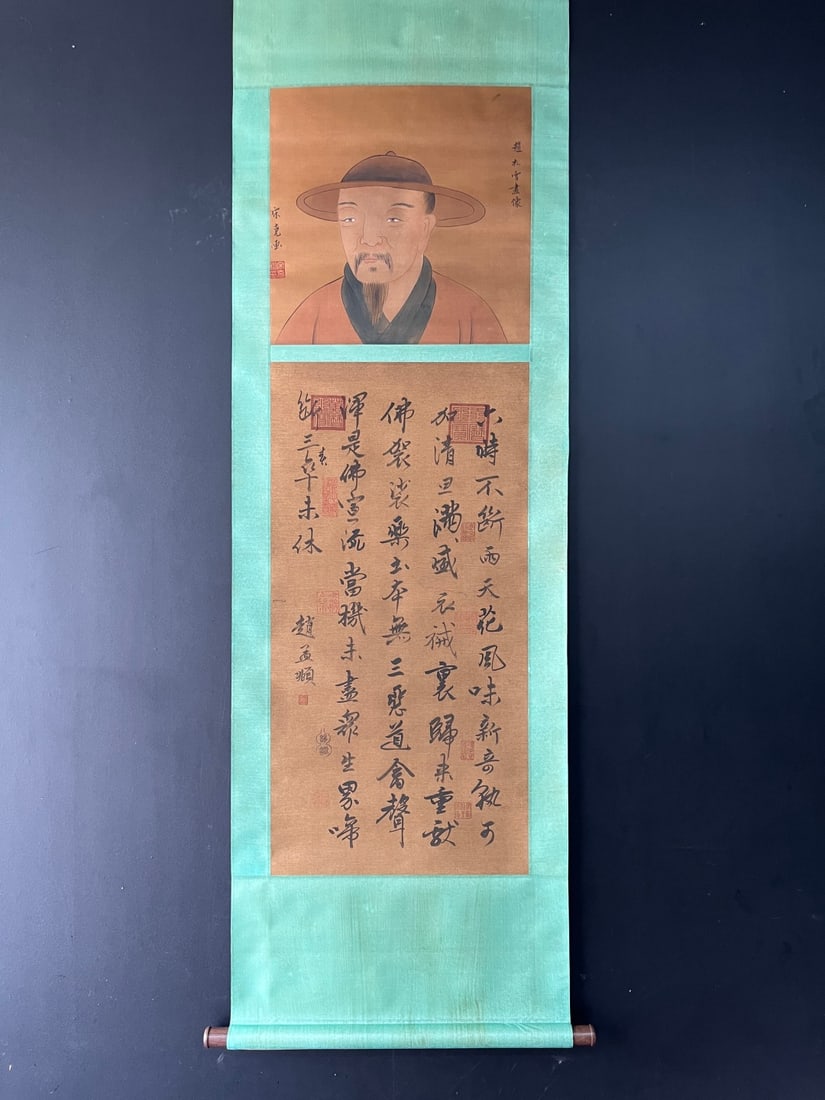 趙松雪畫像
宋克画
六時不斷雨天花風味新奇孰可
加清旦滿盛衣裓裏歸來重獻
佛袈裟樂土本無三惡道禽聲
渾是佛宣流當機未盡衆生界啼
斷三春卒未休
趙孟頫